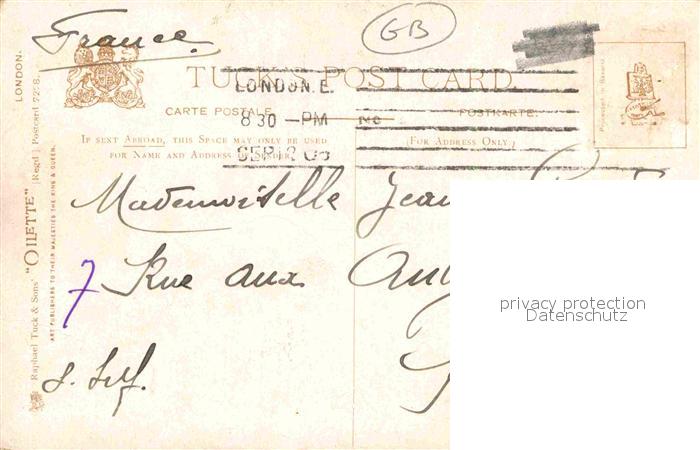 France
GB
TUCK'S POST CARD
LONDON. E.
CARTE POSTALE
POSTKARTE.
8 30 - PM
IF SENT ABROAD, THIS SPACE MAY ONLY BE USED
FOR NAME AND ADDRESS OF SENDER.
(FOR ADDRESS ONLY)
SEP
Mademoiselle
7 Rue aux
LONDON.
Raphael Tuck & Sons' "OILETTE" [Regd.] Postcard
ART PUBLISHERS TO THEIR MAJESTIES THE KING & QUEEN.
privacy protection
Datenschutz